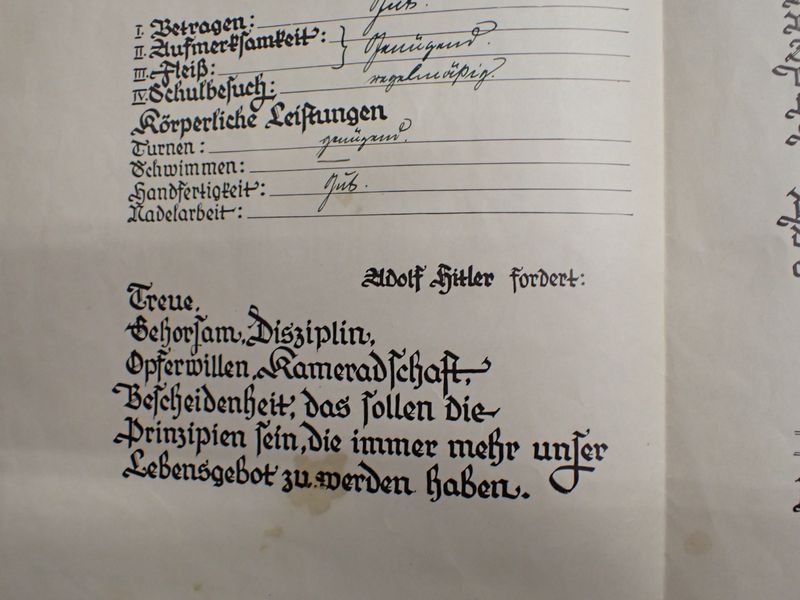 Gut.
I. Betragen:
II. Aufmerksamkeit: } Genügend.
III. Fleiß:
IV. Schulbesuch: regelmäßig.
Körperliche Leistungen
Turnen: genügend.
Schwimmen: —
Handfertigkeit: Gut.
Nadelarbeit:
Adolf Hitler fordert:
Treue,
Gehorsam, Disziplin,
Opferwillen, Kameradschaft,
Bescheidenheit, das sollen die
Prinzipien sein, die immer mehr unser
Lebensgebot zu werden haben.